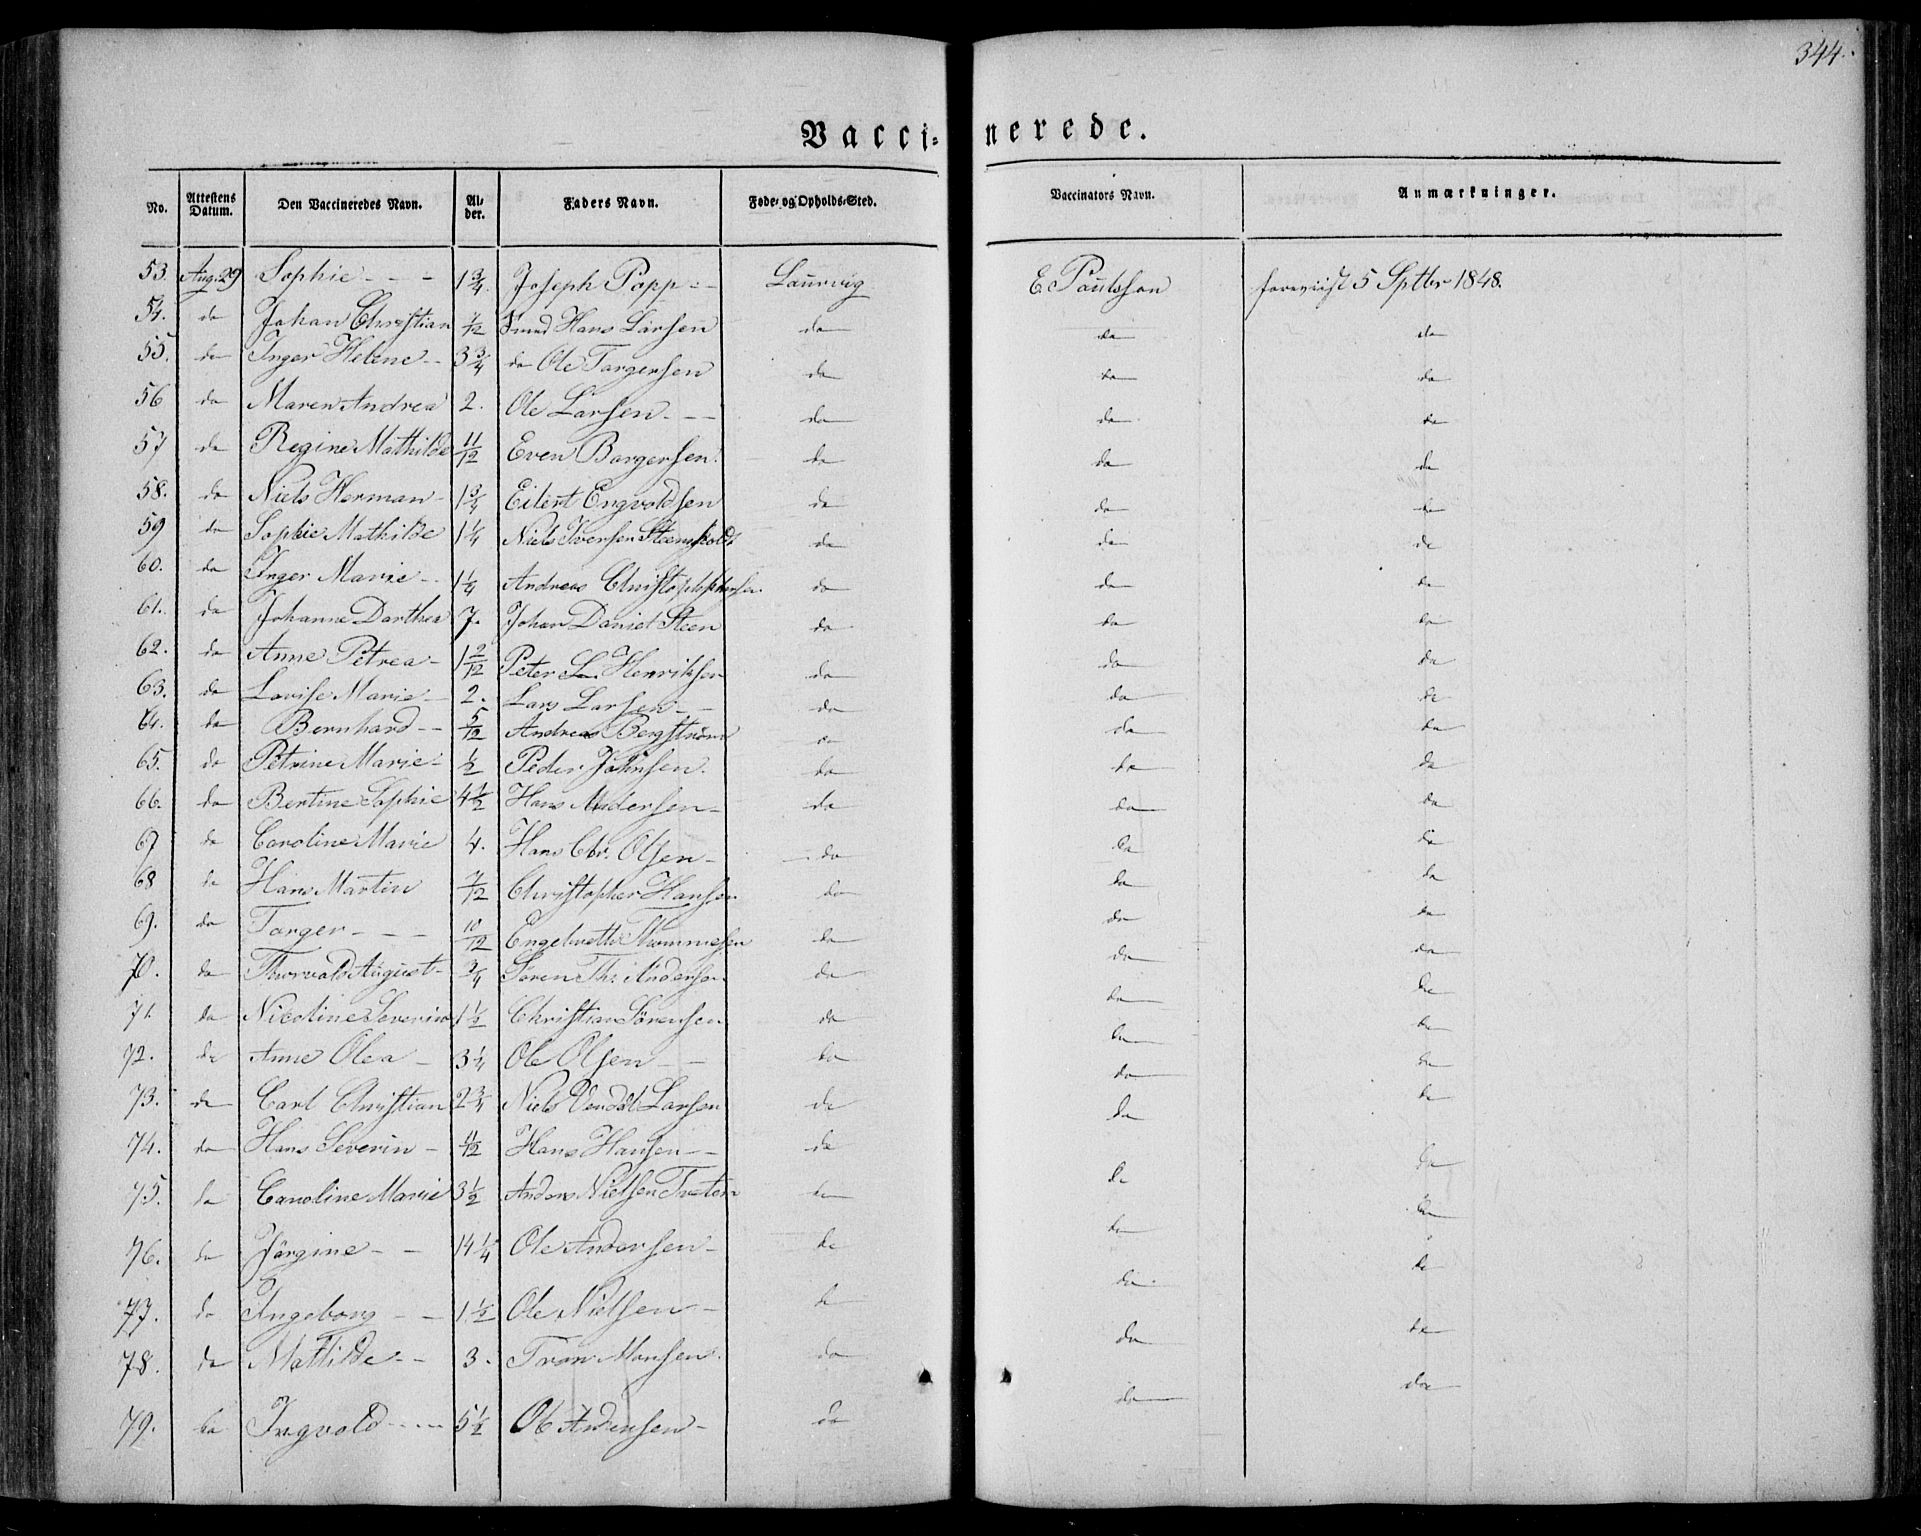 344.
Vacci= nerede.
No. Attestens Datum. Den Vaccineredes Navn. Al-der. Faders Navn. Føde- og Opholds-Sted. Vaccinators Navn. Anmærkninger.
53. Aug. 29 Sophie - - - 1 3/4. Joseph Popp - Laurvig E. Paulsson foreviist 5 Sptbr 1848.
54. do Johan Christian 7/12 Smed Hans Larsen do do do
55. do Inger Helene - - 3 3/4 do Ole Torgersen do do do
56 do Maren Andrea 2. Ole Larsen - - do do do
57 do Regine Mathilde 11/12 Even Borgersen. do do do
58. do Niels Herman - 1 3/4 Eilert Engvoldsen do do do
59 do Sophie Mathilde 1 1/4 Niels Iversen Steensholdt do do do
60. do Inger Marie - - 1 1/4 Andreas Christophersen do do do
61. do Johanne Dorthea 7. Johan Daniel Steen do do do
62. do Anne Petrea - 1 2/12 Peter Henriksen do do do
63. do Lovise Marie - 2. Lars Larsen - - do do do
64. do Bernhard - - 5/12 Andreas Bergstrøm do do do
65. do Petrine Marie - 1/2 Peder Johnsen. do do do
66. do Bertine Sophie 4 1/2 Hans Andersen - do do do
67 do Caroline Marie 4. Hans Chr. Olsen - do do do
68 do Hans Martin 7/12 Christopher Hansen do do do
69. do Torger - - - 10/12 Engebreth Thommesen do do do
70. do Thorvald August - 3/4 Søren Th: Andersen do do do
71. do Nicoline Severine 1 1/2 Christian Sørensen do do do
72. do Anne Olea - 3 1/4 Ole Olsen - do do do
73. do Carl Christian 2 3/4 Niels Vendel Larsen do do do
74. do Hans Severin - 11/12 Hans Hansen - - do do do
75. do Caroline Marie 3 1/2 Anders Nielsen Treten do do do
76. do Jørgine - - 14 1/4 Ole Andersen - do do do
77. do Ingeborg - - 1 1/2 Ole Nielsen - do do do
78. do Mathilde - - 3. Tron Monsen. do do do
79. do Ingvold - - - - 5 1/2 Ole Andersen - do